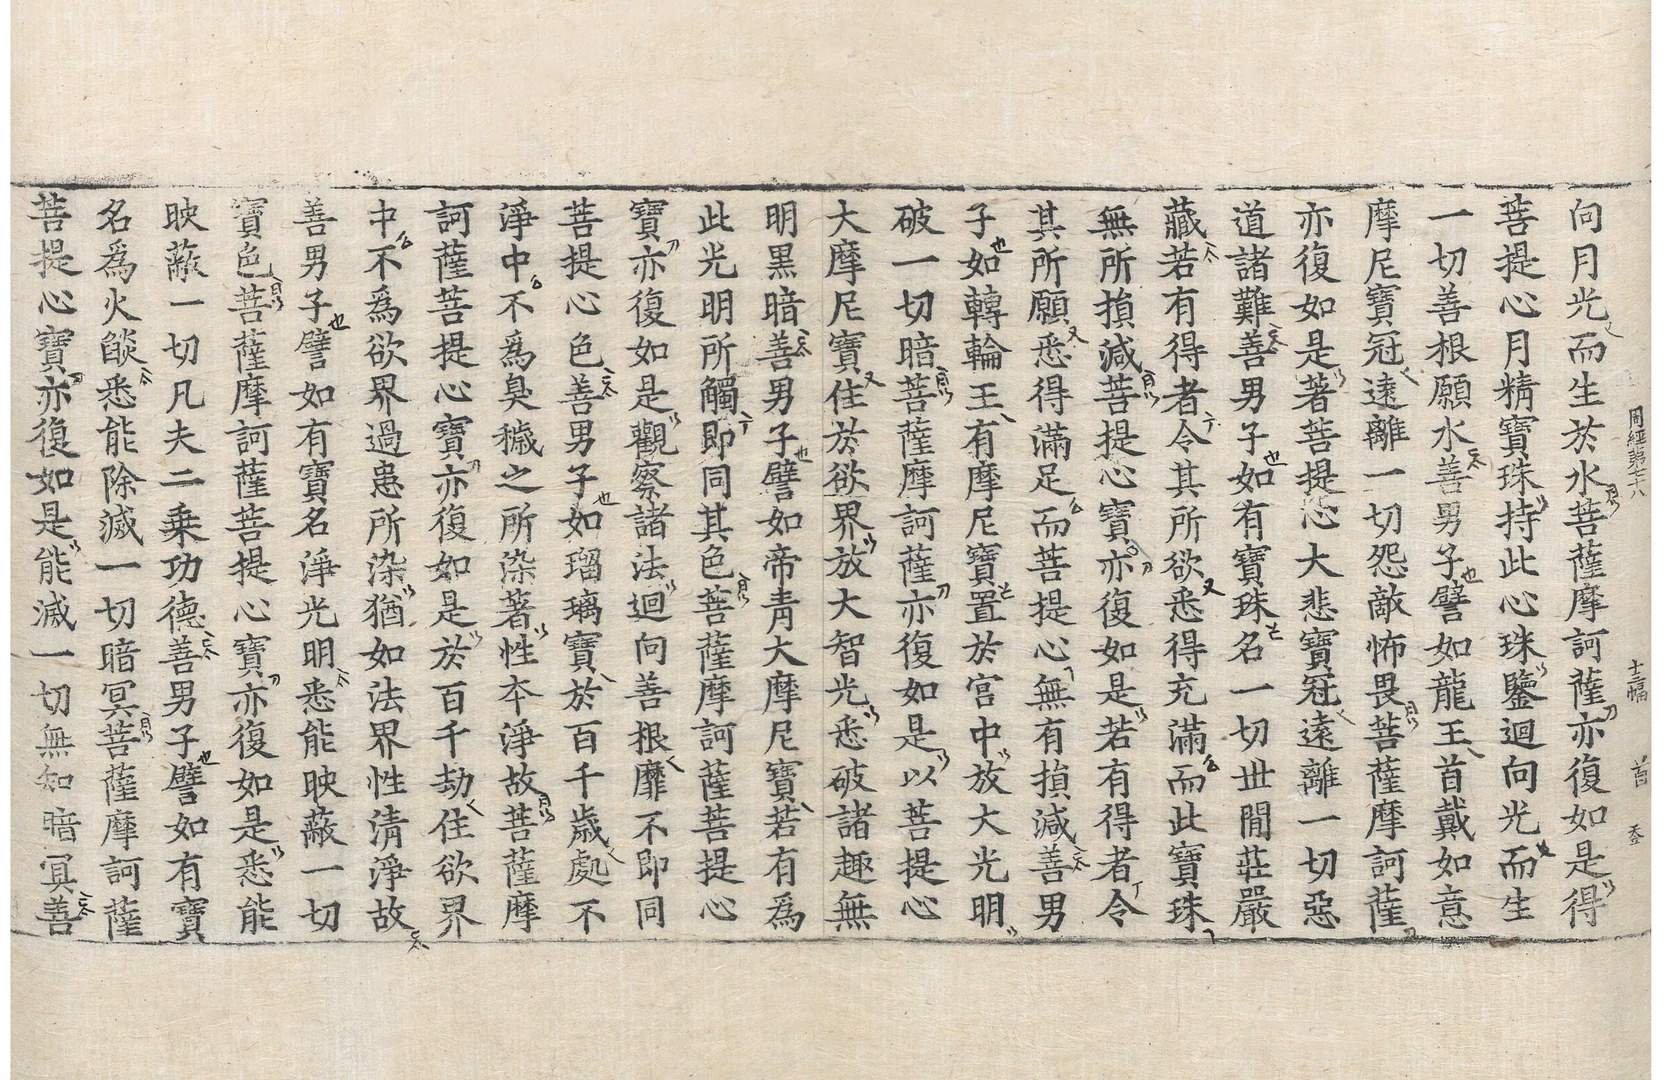 周經第七十八 十三幅 首 吞
向月光而生於水菩薩摩訶薩亦復如是得
菩提心月精寶珠持此心珠鑒迴向光而生
一切善根願水善男子譬如龍王首戴如意
摩尼寶冠遠離一切怨敵怖畏菩薩摩訶薩
亦復如是著菩提心大悲寶冠遠離一切惡
道諸難善男子如有寶珠名一切世閒莊嚴
藏若有得者令其所欲悉得充滿而此寶珠
無所損減菩提心寶亦復如是若有得者令
其所願悉得滿足而菩提心無有損減善男
子如轉輪王有摩尼寶置於宮中放大光明
破一切暗菩薩摩訶薩亦復如是以菩提心
大摩尼寶住於欲界放大智光悉破諸趣無
明黑暗善男子譬如帝青大摩尼寶若有為
此光明所觸即同其色菩薩摩訶薩菩提心
寶亦復如是觀察諸法迴向善根靡不即同
菩提心色善男子如瑠璃寶於百千歲處不
淨中不為臭穢之所染著性本淨故菩薩摩
訶薩菩提心寶亦復如是於百千劫住欲界
中不為欲界過患所染猶如法界性清淨故
善男子譬如有寶名淨光明悉能映蔽一切
寶色菩薩摩訶薩菩提心寶亦復如是悉能
映蔽一切凡夫二乗功德善男子譬如有寶
名為火燄悉能除滅一切暗冥菩薩摩訶薩
菩提心寶亦復如是能滅一切無知暗冥善